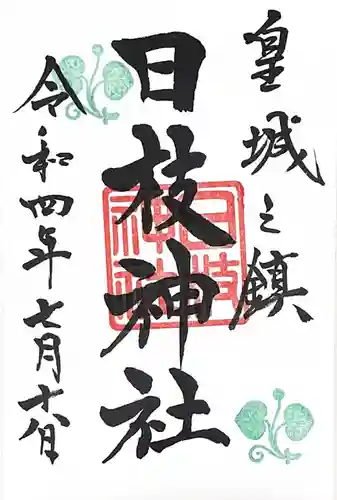 皇城之鎮
日枝神社
日枝神社
令和四年七月十八日